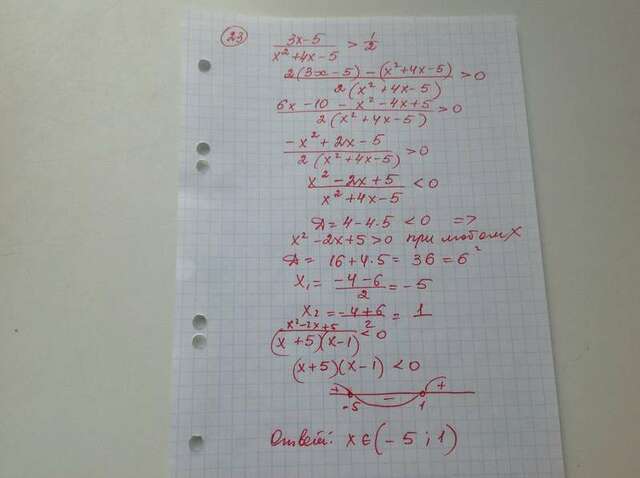 23
(3x-5)/(x²+4x-5) > 1/2
(2(3x-5)-(x²+4x-5))/(2(x²+4x-5)) > 0
(6x-10-x²-4x+5)/(2(x²+4x-5)) > 0
(-x²+2x-5)/(2(x²+4x-5)) > 0
(x²-2x+5)/(x²+4x-5) < 0
Д = 4-4·5 < 0 =>
x²-2x+5>0 при любом X
Д = 16+4·5 = 36 = 6²
X₁ = (-4-6)/2 = -5
X₂ = (-4+6)/2 = 1
(x²-2x+5)/((x+5)(x-1)) < 0
(x+5)(x-1) < 0
+ - +
-5 1
Ответ: x ∈ (-5; 1)